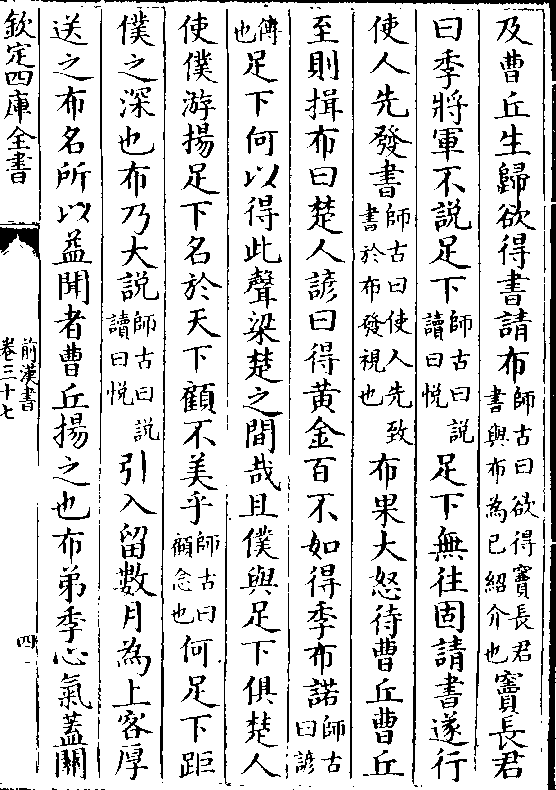 及曹丘生歸欲得書請布師古曰欲得竇長君書與布為已紹介也竇長君
曰季將軍不說足下師古曰說讀曰悦足下無往固請書遂行
使人先發書師古曰使人先致書於布發視也布果大怒待曹丘曹丘
至則揖布曰楚人諺曰得黄金百不如得季布諾師古曰諺
傳也足下何以得此聲梁楚之間哉且僕與足下俱楚人
使僕游揚足下名於天下顧不美乎師古曰顧念也何足下距
僕之深也布乃大説師古曰説讀曰悦引入留數月為上客厚
送之布名所以益聞者曹丘揚之也布弟季心氣蓋關
欽定四庫全書
前漢書
卷三十七
四